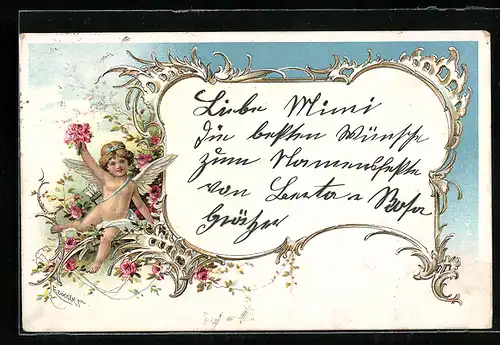 Liebe Mimi
die besten Wünsche
zum Namensfeste
von Berta u Rosa
Grätzer